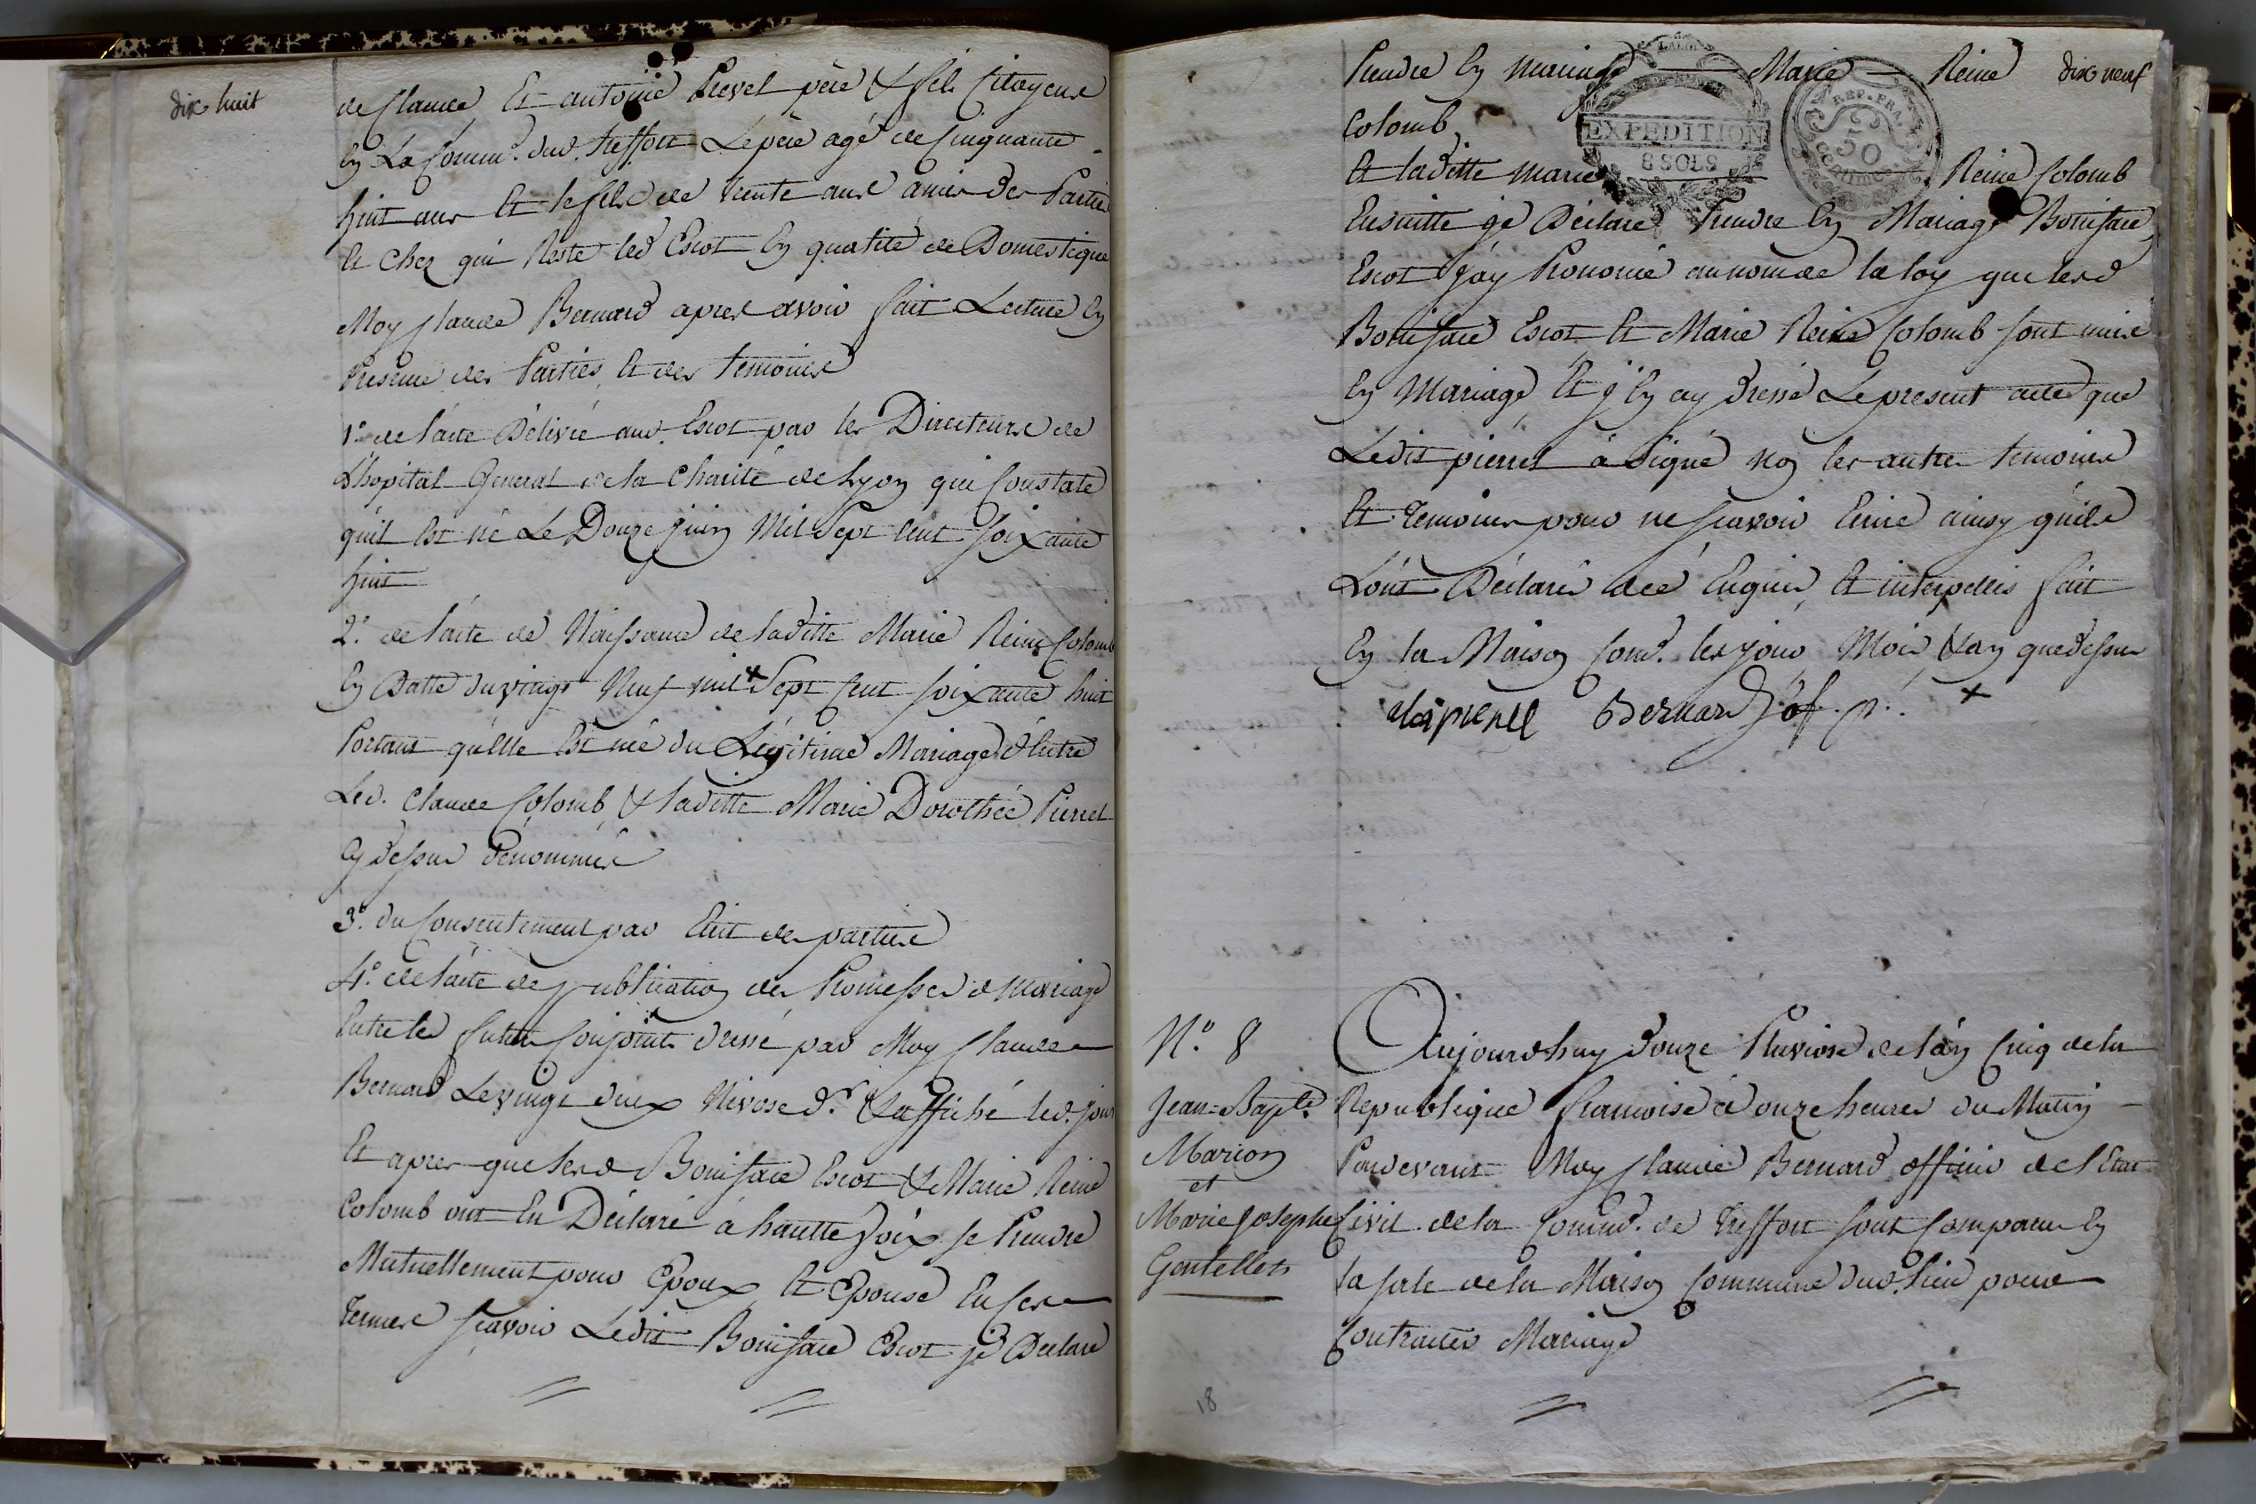 dix huit
de Claude Et antoine Prevel père & fils Citoyens
En La Comm.e dud. treffort Le père agé de Cinquante
huit ans Et le fils de trente ans amis des Parties
Et Chez qui Reste led Escot En qualité de Domestique
Moy Claude Bernard apres avoir fait Lecture En
Presence des Parties Et des temoins
1.º de l'acte Délivré aud. Escot par les Directeurs de
L'hopital General de la Charité de Lyon qui Constate
qu'il Est né Le Douze juin Mil Sept Cent Soixante
huit
2.º de l'acte de Naissance de laditte Marie Reine Colomb
En Datte du vingt Neuf mil + Sept Cent Soixante huit
Portant qu'elle Est née du Légitime Mariage d'Entre
Led. Claude Colomb & laditte Marie Dorothée Pierrel
Cy dessus dénommés
3.º du Consentement par Ecrit des parties
4.º de l'acte de publication des Promesses de mariage
Entre les futurs Conjoints dressé par Moy Claude
Bernard Le vingt deux Nivose d.r & affiché led. jour
Et apres que lesd Boniface Escot & Marie Reine
Colomb ont Eu Déclaré à hautte voix se Prendre
Mutuellement pour Epoux Et Epouse En ces
termes sçavoir Ledit Boniface Escot je Déclare
dix neuf
Prendre En mariage Marie Reine
Colomb
EXPEDITION
8 SOLS
REP. FRA.
50
centimes
Et laditte marie Reine Colomb
Ensuitte je Déclare Prendre En Mariage Boniface
Escot j'ay Prononcé au nom de la loy que lesd
Boniface Escot Et Marie Reine Colomb sont unis
En Mariage Et j'En ay dressé Le present acte que
Ledit pierrel à Signé non les autres temoins
Et temoins pour ne sçavoir Ecrire ainsy qu'ils
L'ont Déclaré de ce Enquis Et interpellés fait
En la Maison Com.e les jour Mois & an que dessus
Bernard of. p. +
N.º 8
Jean=Bapte.
Marion
et
Marie Josephe
Gentellet
Aujourdhuy douze Pluviose de l'an Cinq de la
Republique francoise à onze heures du Matin
Pardevant Moy Claude Bernard officier de l'Etat
Civil de la Comm.e de Treffort sont Comparus En
la sale de la Maison Commune dud. lieu pour
Contracter Mariage
18